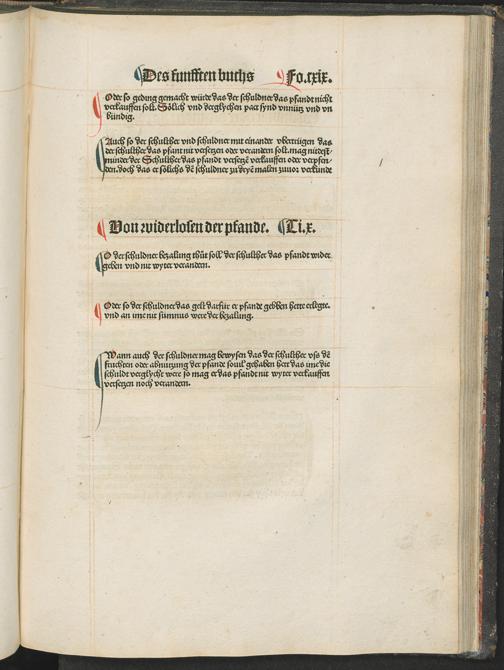 Des funfften buchs Fo.cxix.
Oder so geding gemacht würde das der schuldner das pfandt nicht
verkauffen solt. Sölich vnd derglychen pact synd vnnütz vnd vn
bündig.
Auch so der schulther vnd schuldner mit einander vbertrügen das
der schulther das pfant nit versetzen oder verandern solt. mag nitdest
minder der Schulther das pfandt versetzē verkauffen oder verpfen
den. doch das er sölichs dē schuldner zu dryē malen zuuor verkunde
Von widerlosen der pfande. Ti.x.
So der schuldner bezalung thüt soll der schulther das pfandt wider
geben vnd nit wyter verandern.
Oder so der schuldner das gelt darfür er pfande gebben hette erlegte.
vnd an ime nit sümnus were der bezalung.
Wann auch der schuldner mag bewysen das der schulther vſs dē
fruchten oder abnutzung der pfandt souil gehaben hett das ime die
schuldt verglycht were so mag er das pfandt nit wyter verkauffen
versetzen noch verandern.